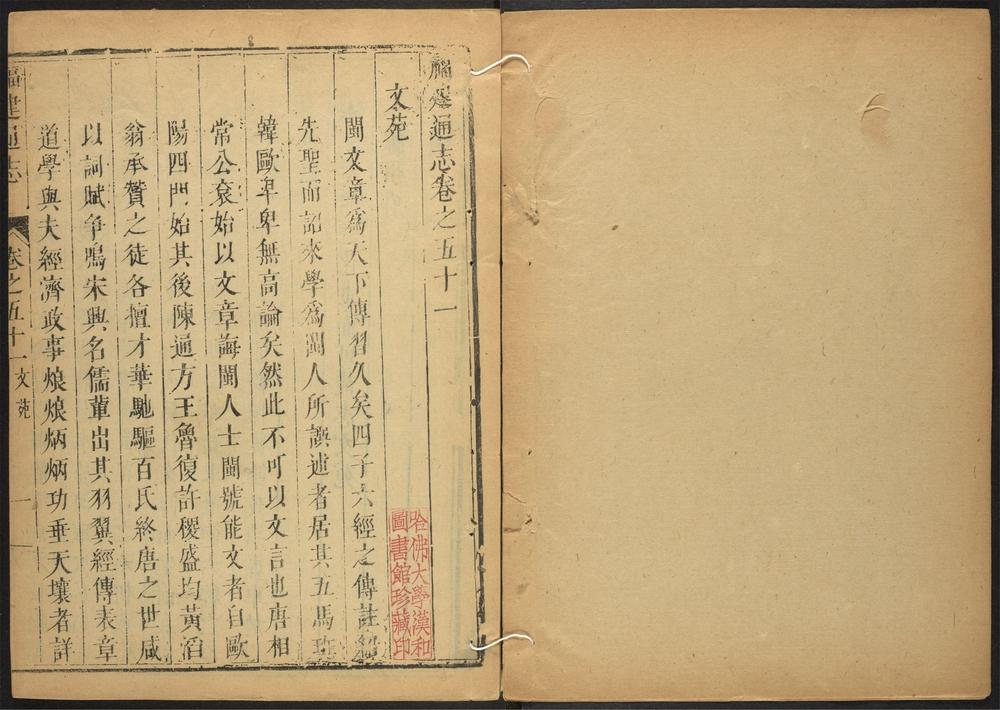 福建通志卷之五十一
文苑
閩文章爲天下傳習久矣四子六經之傳註
先聖而詔來學爲閩人所誤述者居其五馬班
韓歐卑卑無高論矣然此不可以文言也唐相
常公袞始以文章誨閩人士閩號能文者自歐
陽四門始其後陳通方王魯復許稷盛均黃滔
翁承贊之徒各擅才華馳驅百氏終唐之世咸
以詞賦爭鳴宋興名儒輩出其羽翼經傳表章
道學與夫經濟政事烺烺炳炳功垂天壤者詳
福建通志
卷之五十一文苑
一
哈佛大學漢和
圖書館珍藏印